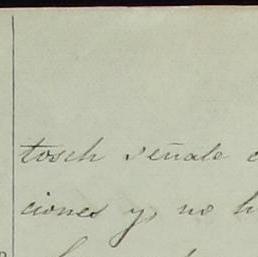 tosch señale
ciones y, no